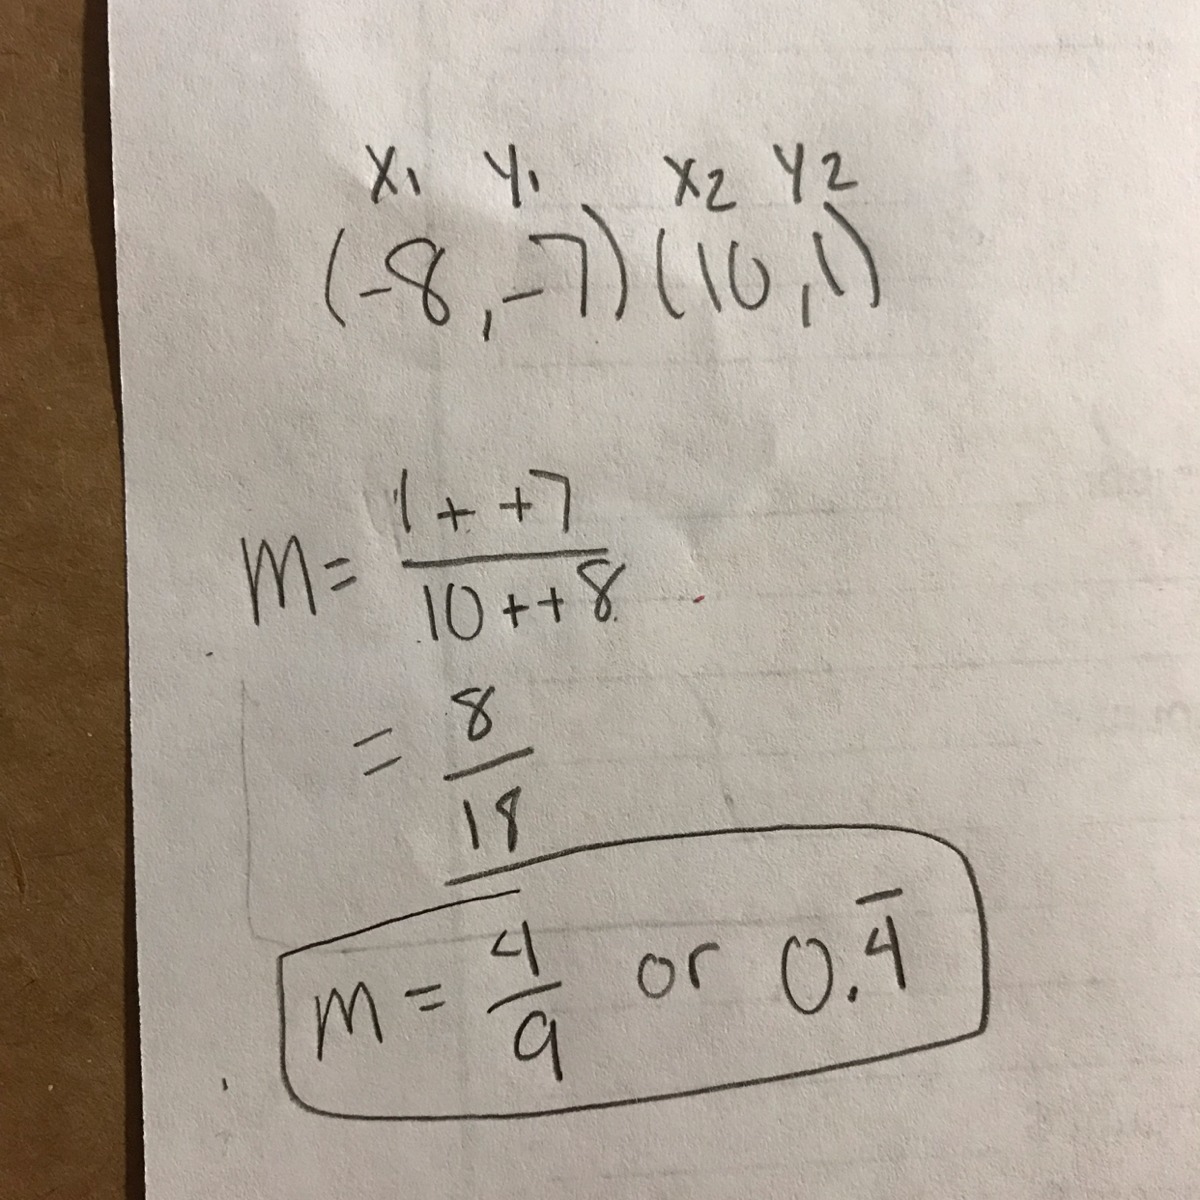 x₁ y₁ x₂ y₂
(-8,-7)(10,1)
m = 1 + +7
10 + + 8
= 8
18
m = 4/9 or 0.4̅